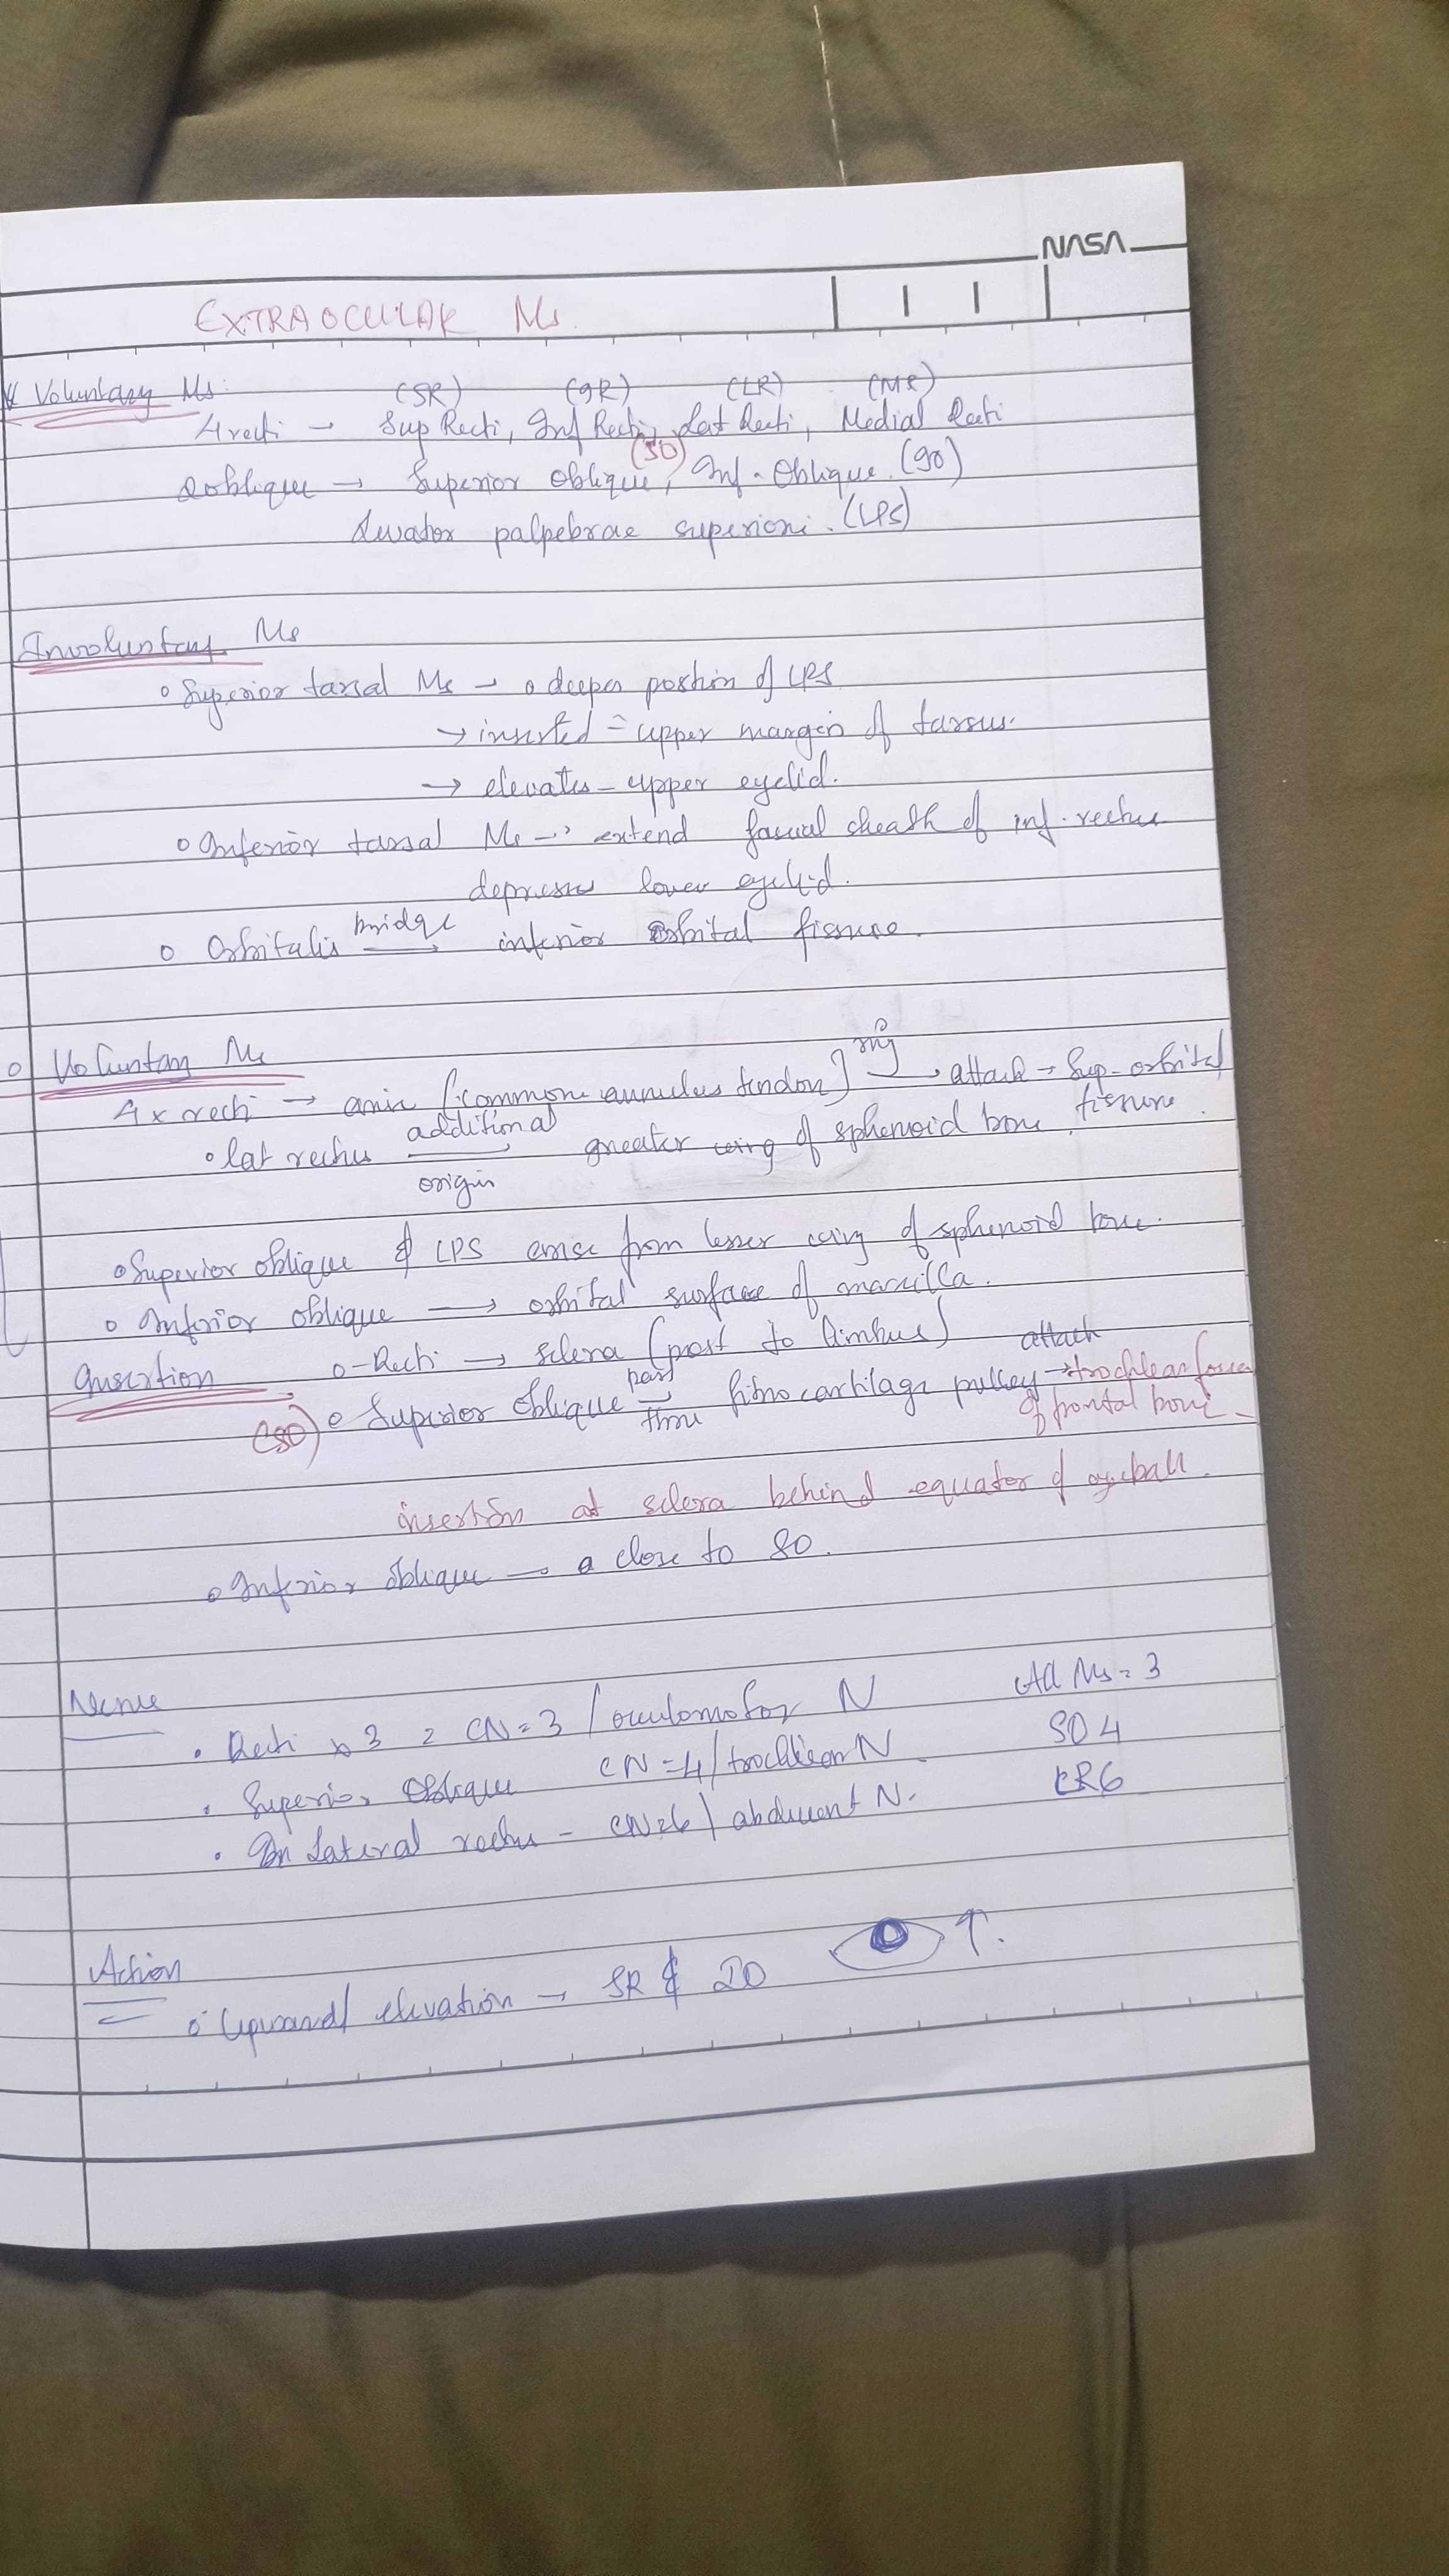 NASA
EXTRAOCULAR Ms.
Voluntary Ms:
(SR) (IR) (LR) (MR)
4 recti → Sup Recti, Inf Recti, Lat Recti, Medial Recti
(SO)
2 oblique → Superior oblique, Inf. Oblique. (IO)
Levator palpebrae superiori. (LPS)
Involuntary Ms
Superior tarsal Ms → deeper portion of LPS
→ inserted = upper margin of tarsus.
→ elevates - upper eyelid.
Inferior tarsal Ms → extend fascial sheath of inf. rectus
depresses lower eyelid.
bridge
Orbitalis → inferior orbital fissure.
Voluntary Ms
ring
4x recti → arise [common annulus tendon] → attach → Sup. orbital
fissure
additional
lat rectus → greater wing of sphenoid bone.
origin
Superior oblique & LPS arise from lesser wing of sphenoid bone.
Inferior oblique → orbital surface of maxilla.
Insertion - Recti → sclera (post to limbus)
pass attach
(SO) Superior oblique → fibrocartilage pulley → trochlear fossa
thru of frontal bone
insertion at sclera behind equator of eyeball.
Inferior oblique → a close to SO.
Nerve All Ms = 3
• Recti x 3 = CN = 3 / oculomotor N
SO 4
• Superior Oblique CN = 4 / trochlear N
LR6
• Lateral rectus - CN = 6 / abducent N.
Action
Upward / elevation → SR & IO ↑.